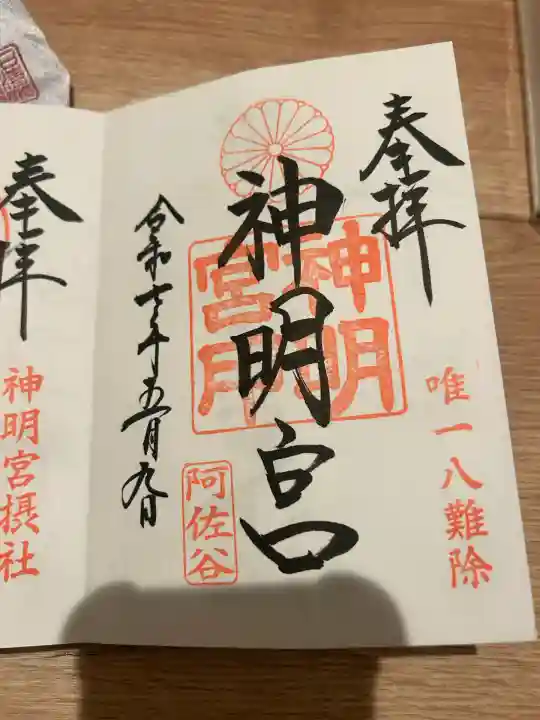 奉拝
唯一八難除
神明宮
神明宮印
阿佐谷
令和七年五月九日
奉拝
神明宮摂社